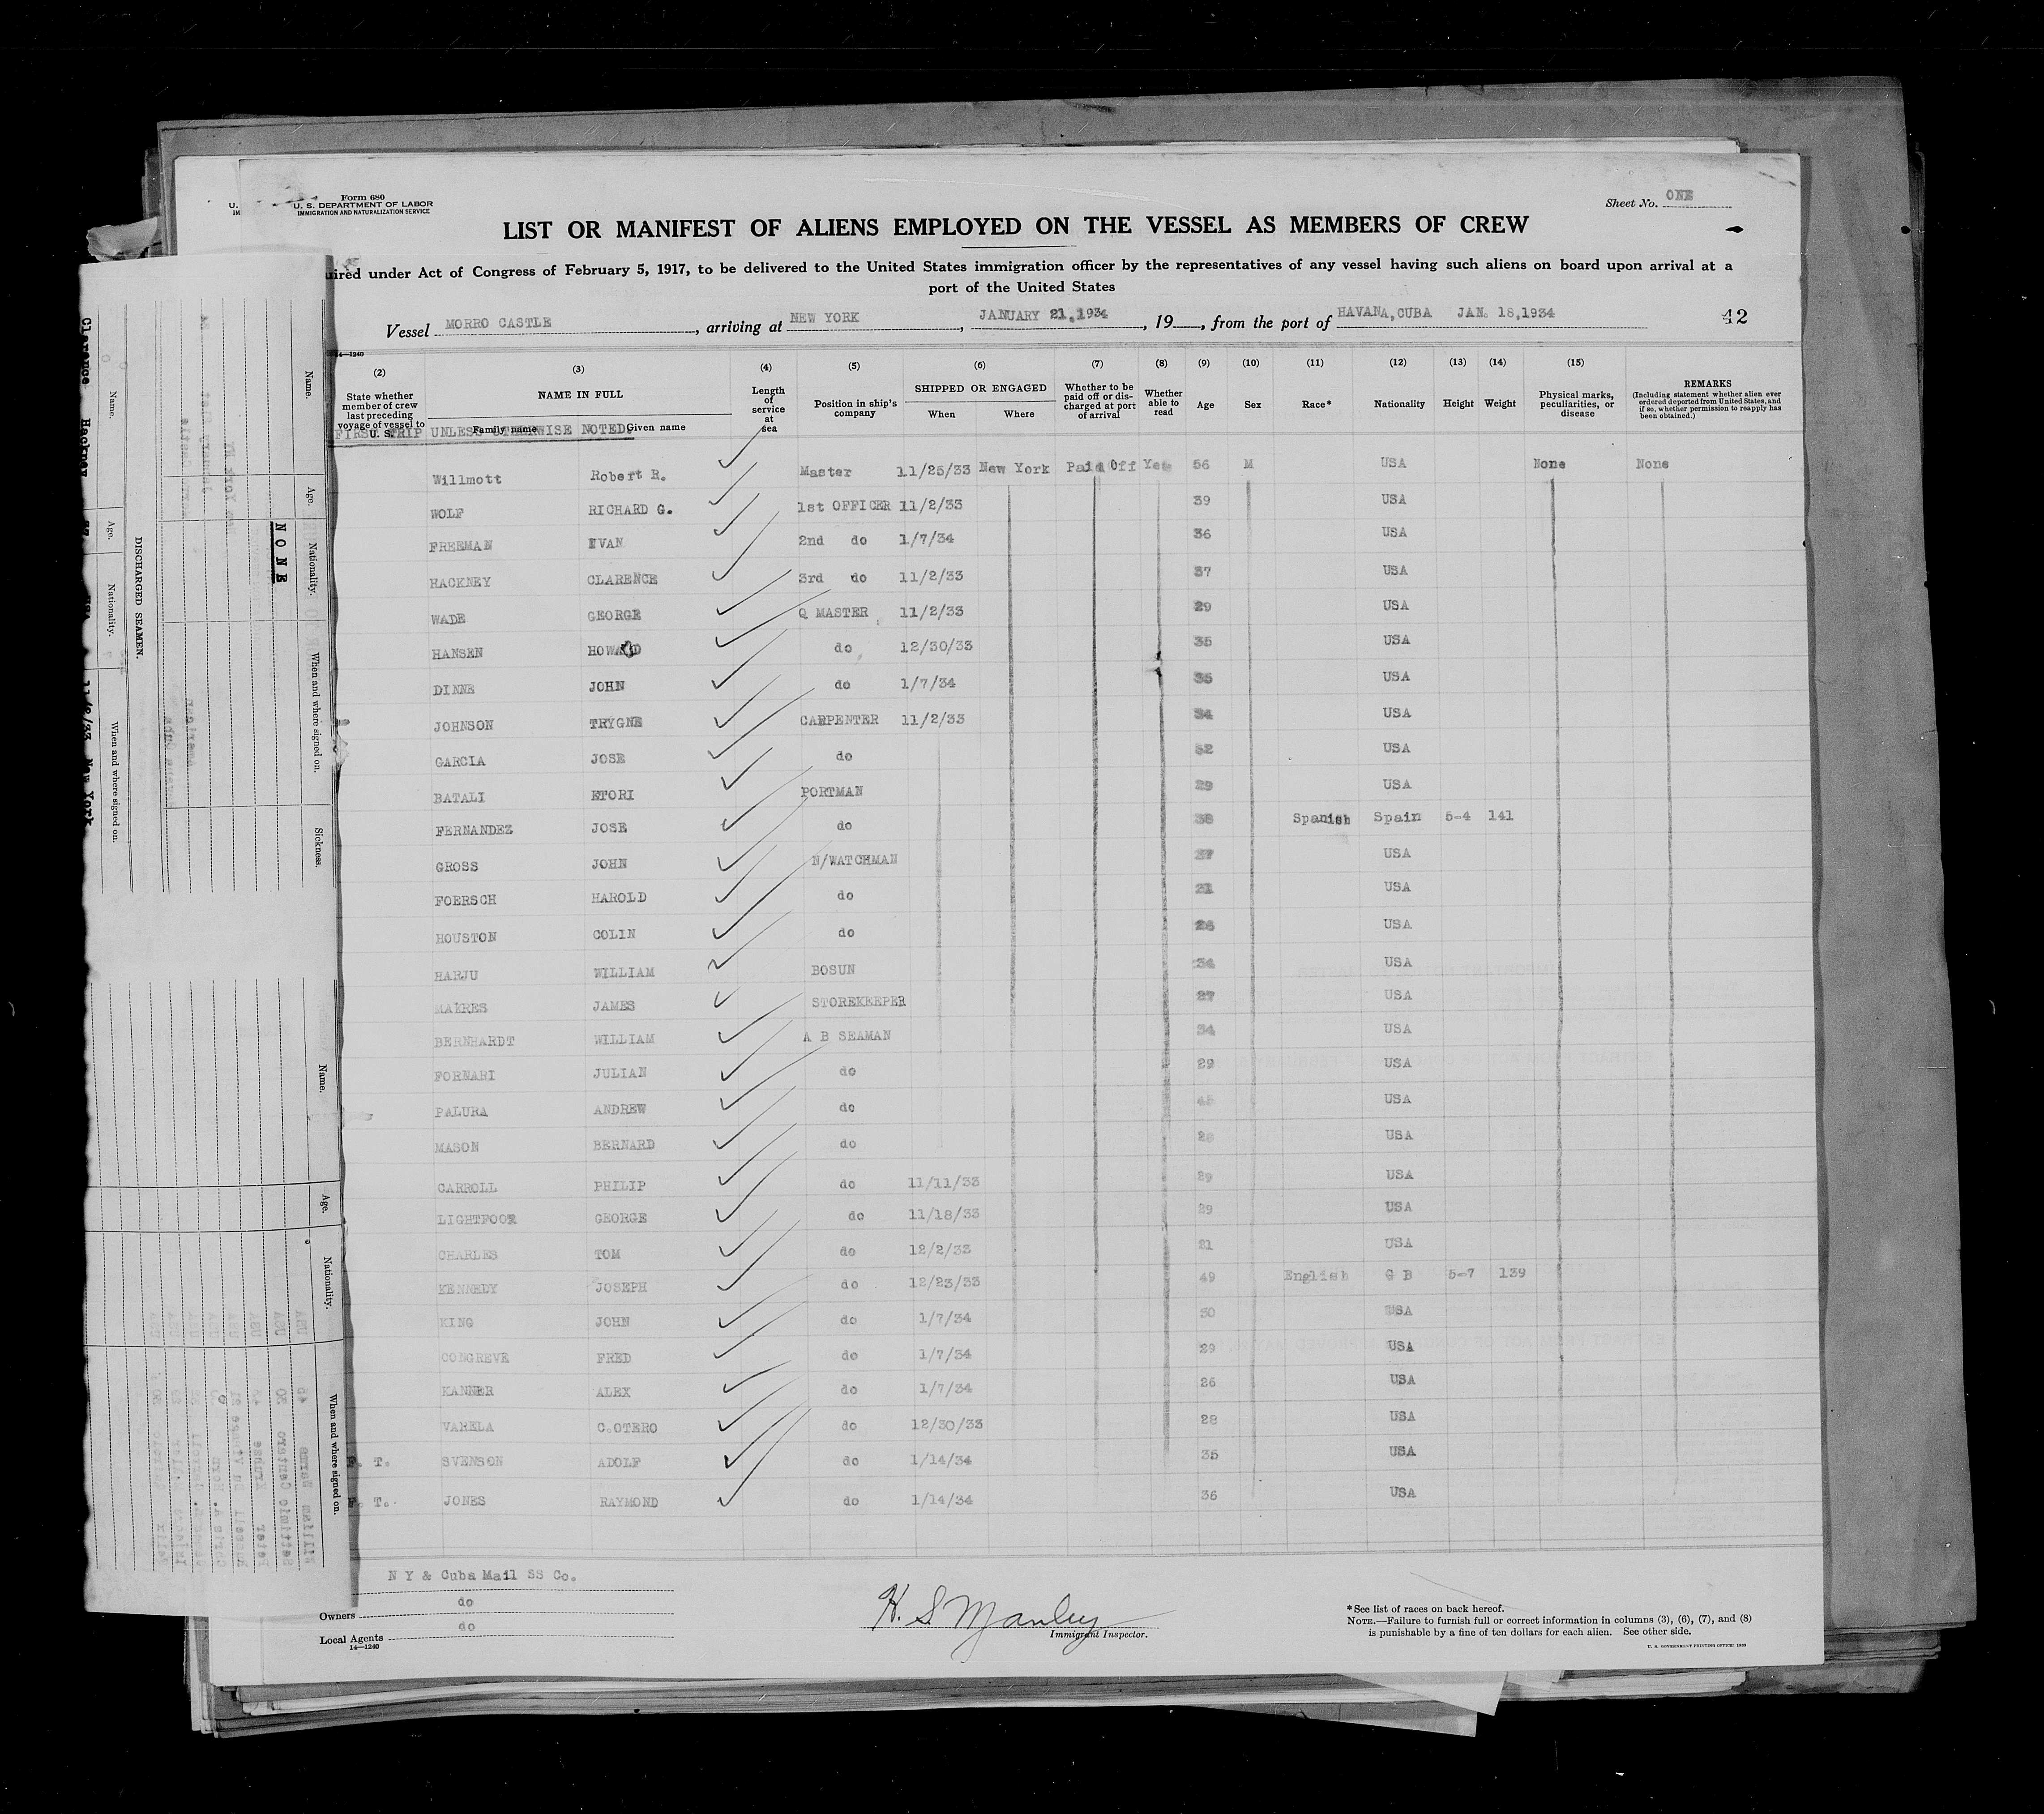 Form 680
U. S. DEPARTMENT OF LABOR
IMMIGRATION AND NATURALIZATION SERVICE
Sheet No. ONE
LIST OR MANIFEST OF ALIENS EMPLOYED ON THE VESSEL AS MEMBERS OF CREW
uired under Act of Congress of February 5, 1917, to be delivered to the United States immigration officer by the representatives of any vessel having such aliens on board upon arrival at a
port of the United States
Vessel MORRO CASTLE, arriving at NEW YORK, JANUARY 21,1934, 19, from the port of HAVANA,CUBA JAN. 18,1934 42
14—1240
(2) (3) (4) (5) (6) (7) (8) (9) (10) (11) (12) (13) (14) (15)
State whether member of crew last preceding voyage of vessel to U. S.
NAME IN FULL
Family name Given name
Length of service at sea
Position in ship's company
SHIPPED OR ENGAGED
When Where
Whether to be paid off or discharged at port of arrival
Whether able to read
Age
Sex
Race*
Nationality
Height
Weight
Physical marks, peculiarities, or disease
REMARKS
(Including statement whether alien ever ordered deported from United States, and if so, whether permission to reapply has been obtained.)
FIRST TRIP UNLESS OTHERWISE NOTED.
Willmott Robert R. Master 11/25/33 New York Paid Off Yes 56 M USA None None
WOLF RICHARD G. 1st OFFICER 11/2/33 39 USA
FREEMAN IVAN 2nd do 1/7/34 36 USA
HACKNEY CLARENCE 3rd do 11/2/33 37 USA
WADE GEORGE Q MASTER 11/2/33 29 USA
HANSEN HOWARD do 12/30/33 35 USA
DINNE JOHN do 1/7/34 35 USA
JOHNSON TRYGNE CARPENTER 11/2/33 34 USA
GARCIA JOSE do 52 USA
BATALI ETORI PORTMAN 29 USA
FERNANDEZ JOSE do 38 Spanish Spain 5-4 141
GROSS JOHN N/WATCHMAN 37 USA
FOERSCH HAROLD do 21 USA
HOUSTON COLIN do 26 USA
HARJU WILLIAM BOSUN 34 USA
MAERES JAMES STOREKEEPER 27 USA
BERNHARDT WILLIAM A B SEAMAN 34 USA
FORNARI JULIAN do 29 USA
PALURA ANDREW do 45 USA
MASON BERNARD do 28 USA
CARROLL PHILIP do 11/11/33 29 USA
LIGHTFOOT GEORGE do 11/18/33 29 USA
CHARLES TOM do 12/2/33 21 USA
KENNEDY JOSEPH do 12/23/33 49 English G B 5-7 139
KING JOHN do 1/7/34 30 USA
CONGREVE FRED do 1/7/34 29 USA
KANNER ALEX do 1/7/34 26 USA
VARELA C.OTERO do 12/30/33 28 USA
F. T. SVENSON ADOLF do 1/14/34 35 USA
F. T. JONES RAYMOND do 1/14/34 36 USA
N Y & Cuba Mail SS Co.
do
Owners
do
Local Agents
14—1240
H. S. Manley
Immigrant Inspector.
*See list of races on back hereof.
NOTE.—Failure to furnish full or correct information in columns (3), (6), (7), and (8)
is punishable by a fine of ten dollars for each alien. See other side.
U. S. GOVERNMENT PRINTING OFFICE: 1933
Name. Age. Nationality. When and where signed on. Sickness.
NONE
DISCHARGED SEAMEN.
Name. Age. Nationality. When and where signed on.
Clarence Hackney 37 USA 11/2/33 New York
Name. Age. Nationality. When and where signed on.